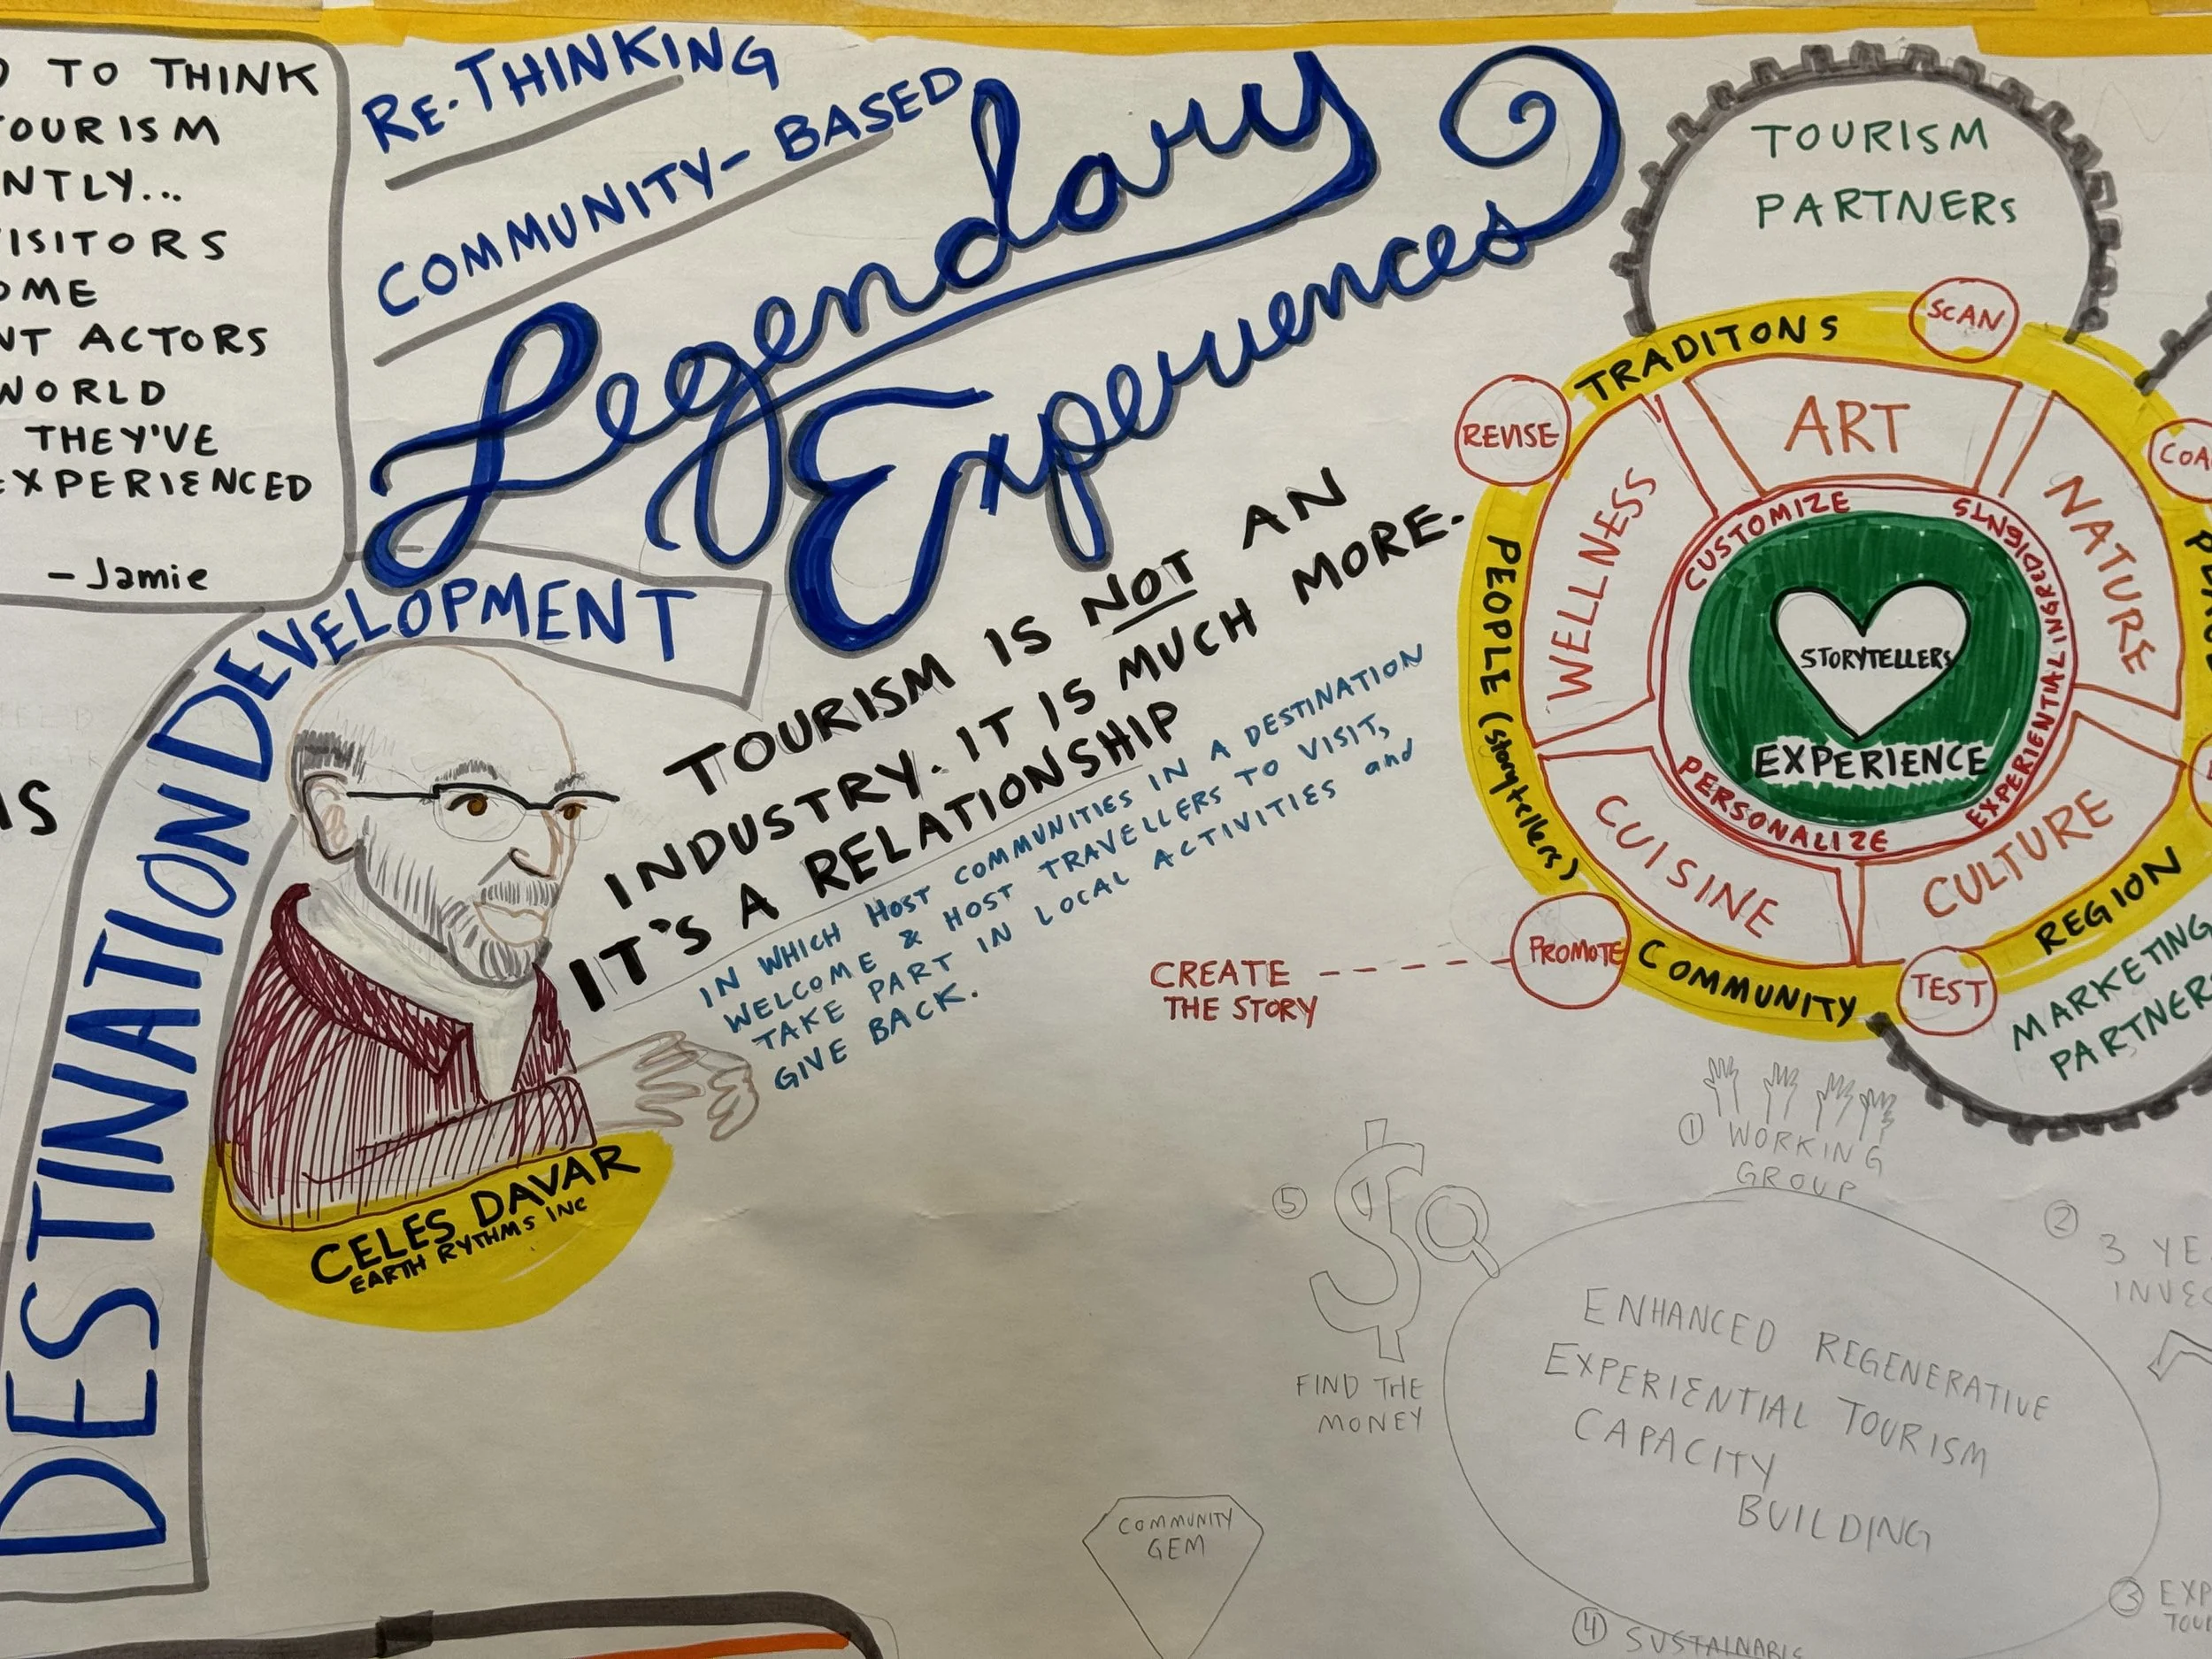 TO THINK
TOURISM
NTLY...
VISITORS
OME
NT ACTORS
WORLD
THEY'VE
EXPERIENCED
- Jamie
IS
DESTINATION DEVELOPMENT
RE-THINKING
COMMUNITY-BASED
Legendary
Experiences
TOURISM IS NOT AN
INDUSTRY. IT IS MUCH MORE.
IT'S A RELATIONSHIP
IN WHICH HOST COMMUNITIES IN A DESTINATION
WELCOME & HOST TRAVELLERS TO VISIT,
TAKE PART IN LOCAL ACTIVITIES and
GIVE BACK.
CELES DAVAR
EARTH RYTHMS INC
TOURISM
PARTNERS
TRADITONS
SCAN
REVISE
COA
PEOPLE (storytellers)
PROMOTE
COMMUNITY
TEST
REGION
ART
NATURE
CULTURE
CUISINE
WELLNESS
CUSTOMIZE
EXPERIENTIAL INGREDIENTS
PERSONALIZE
STORYTELLERS
EXPERIENCE
CREATE
THE STORY
MARKETING
PARTNER
1 WORKING
GROUP
2
3 YE
INVES
3 EXP
TOUR
4
5
FIND THE
MONEY
ENHANCED REGENERATIVE
EXPERIENTIAL TOURISM
CAPACITY
BUILDING
COMMUNITY
GEM